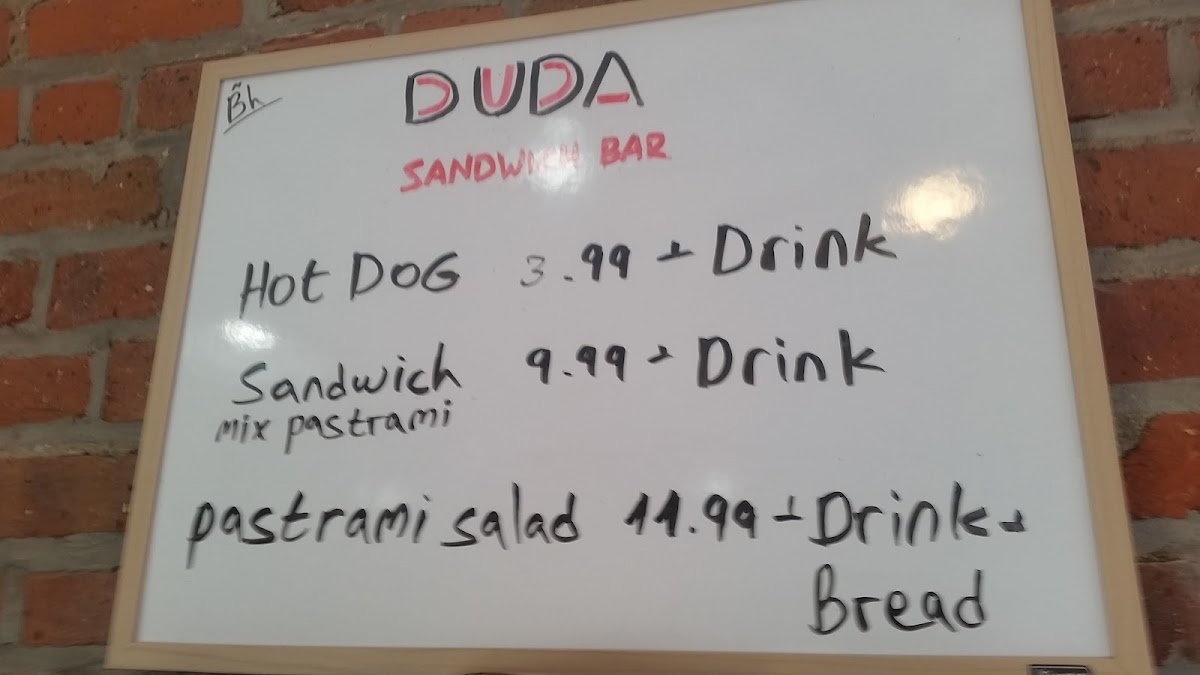 B̃h
DUDA
SANDWICH BAR
Hot DOG 3.99 + Drink
Sandwich 9.99 + Drink
mix pastrami
pastrami salad 11.99 + Drink +
Bread